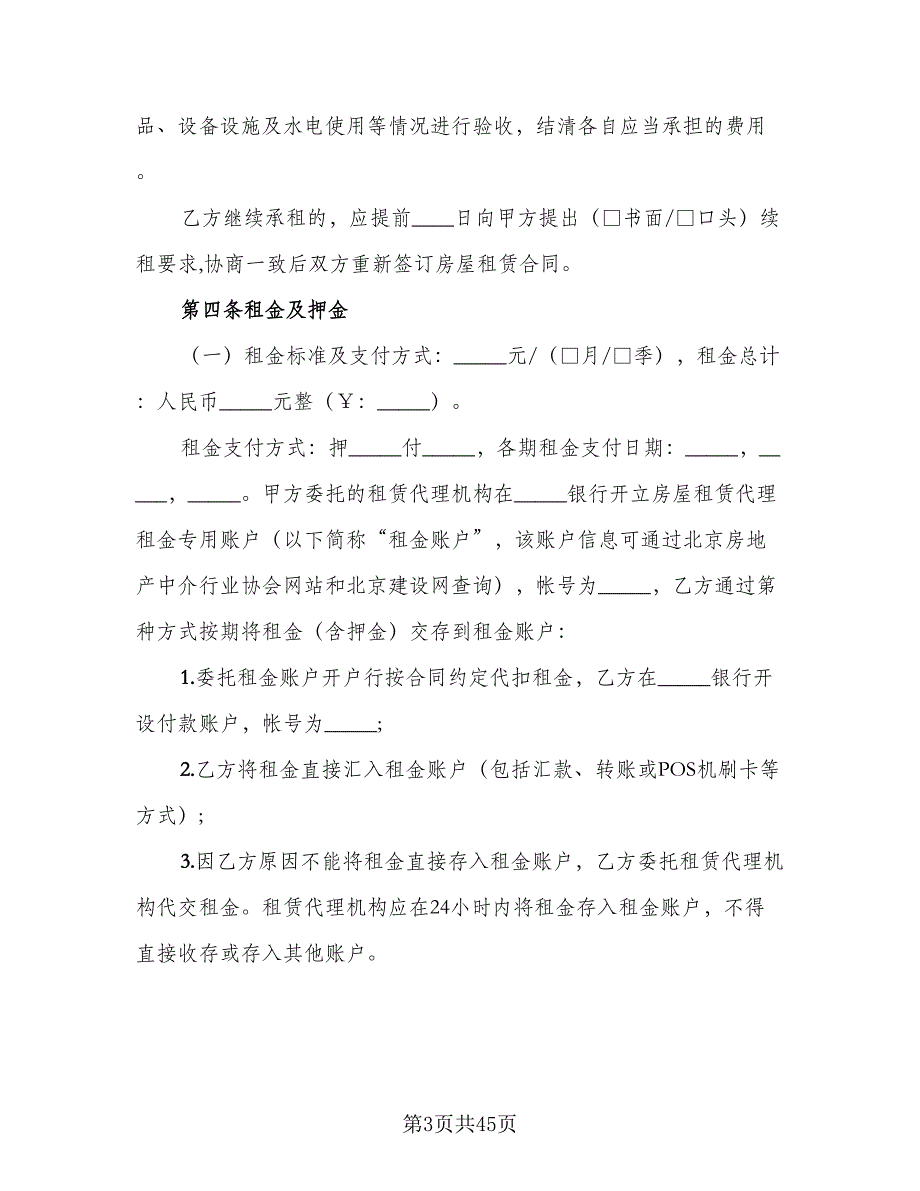 品、设备设施及水电使用等情况进行验收，结清各自应当承担的费用
。
乙方继续承租的，应提前____日向甲方提出（□书面/□口头）续
租要求,协商一致后双方重新签订房屋租赁合同。
第四条租金及押金
（一）租金标准及支付方式：_____元/（□月/□季），租金总计
：人民币_____元整（￥：_____）。
租金支付方式：押_____付_____，各期租金支付日期：_____，__
___，_____。甲方委托的租赁代理机构在_____银行开立房屋租赁代理
租金专用账户（以下简称“租金账户”，该账户信息可通过北京房地
产中介行业协会网站和北京建设网查询），帐号为_____，乙方通过第
种方式按期将租金（含押金）交存到租金账户：
1.委托租金账户开户行按合同约定代扣租金，乙方在_____银行开
设付款账户，帐号为_____;
2.乙方将租金直接汇入租金账户（包括汇款、转账或POS机刷卡等
方式）;
3.因乙方原因不能将租金直接存入租金账户，乙方委托租赁代理机
构代交租金。租赁代理机构应在24小时内将租金存入租金账户，不得
直接收存或存入其他账户。
第3页共45页